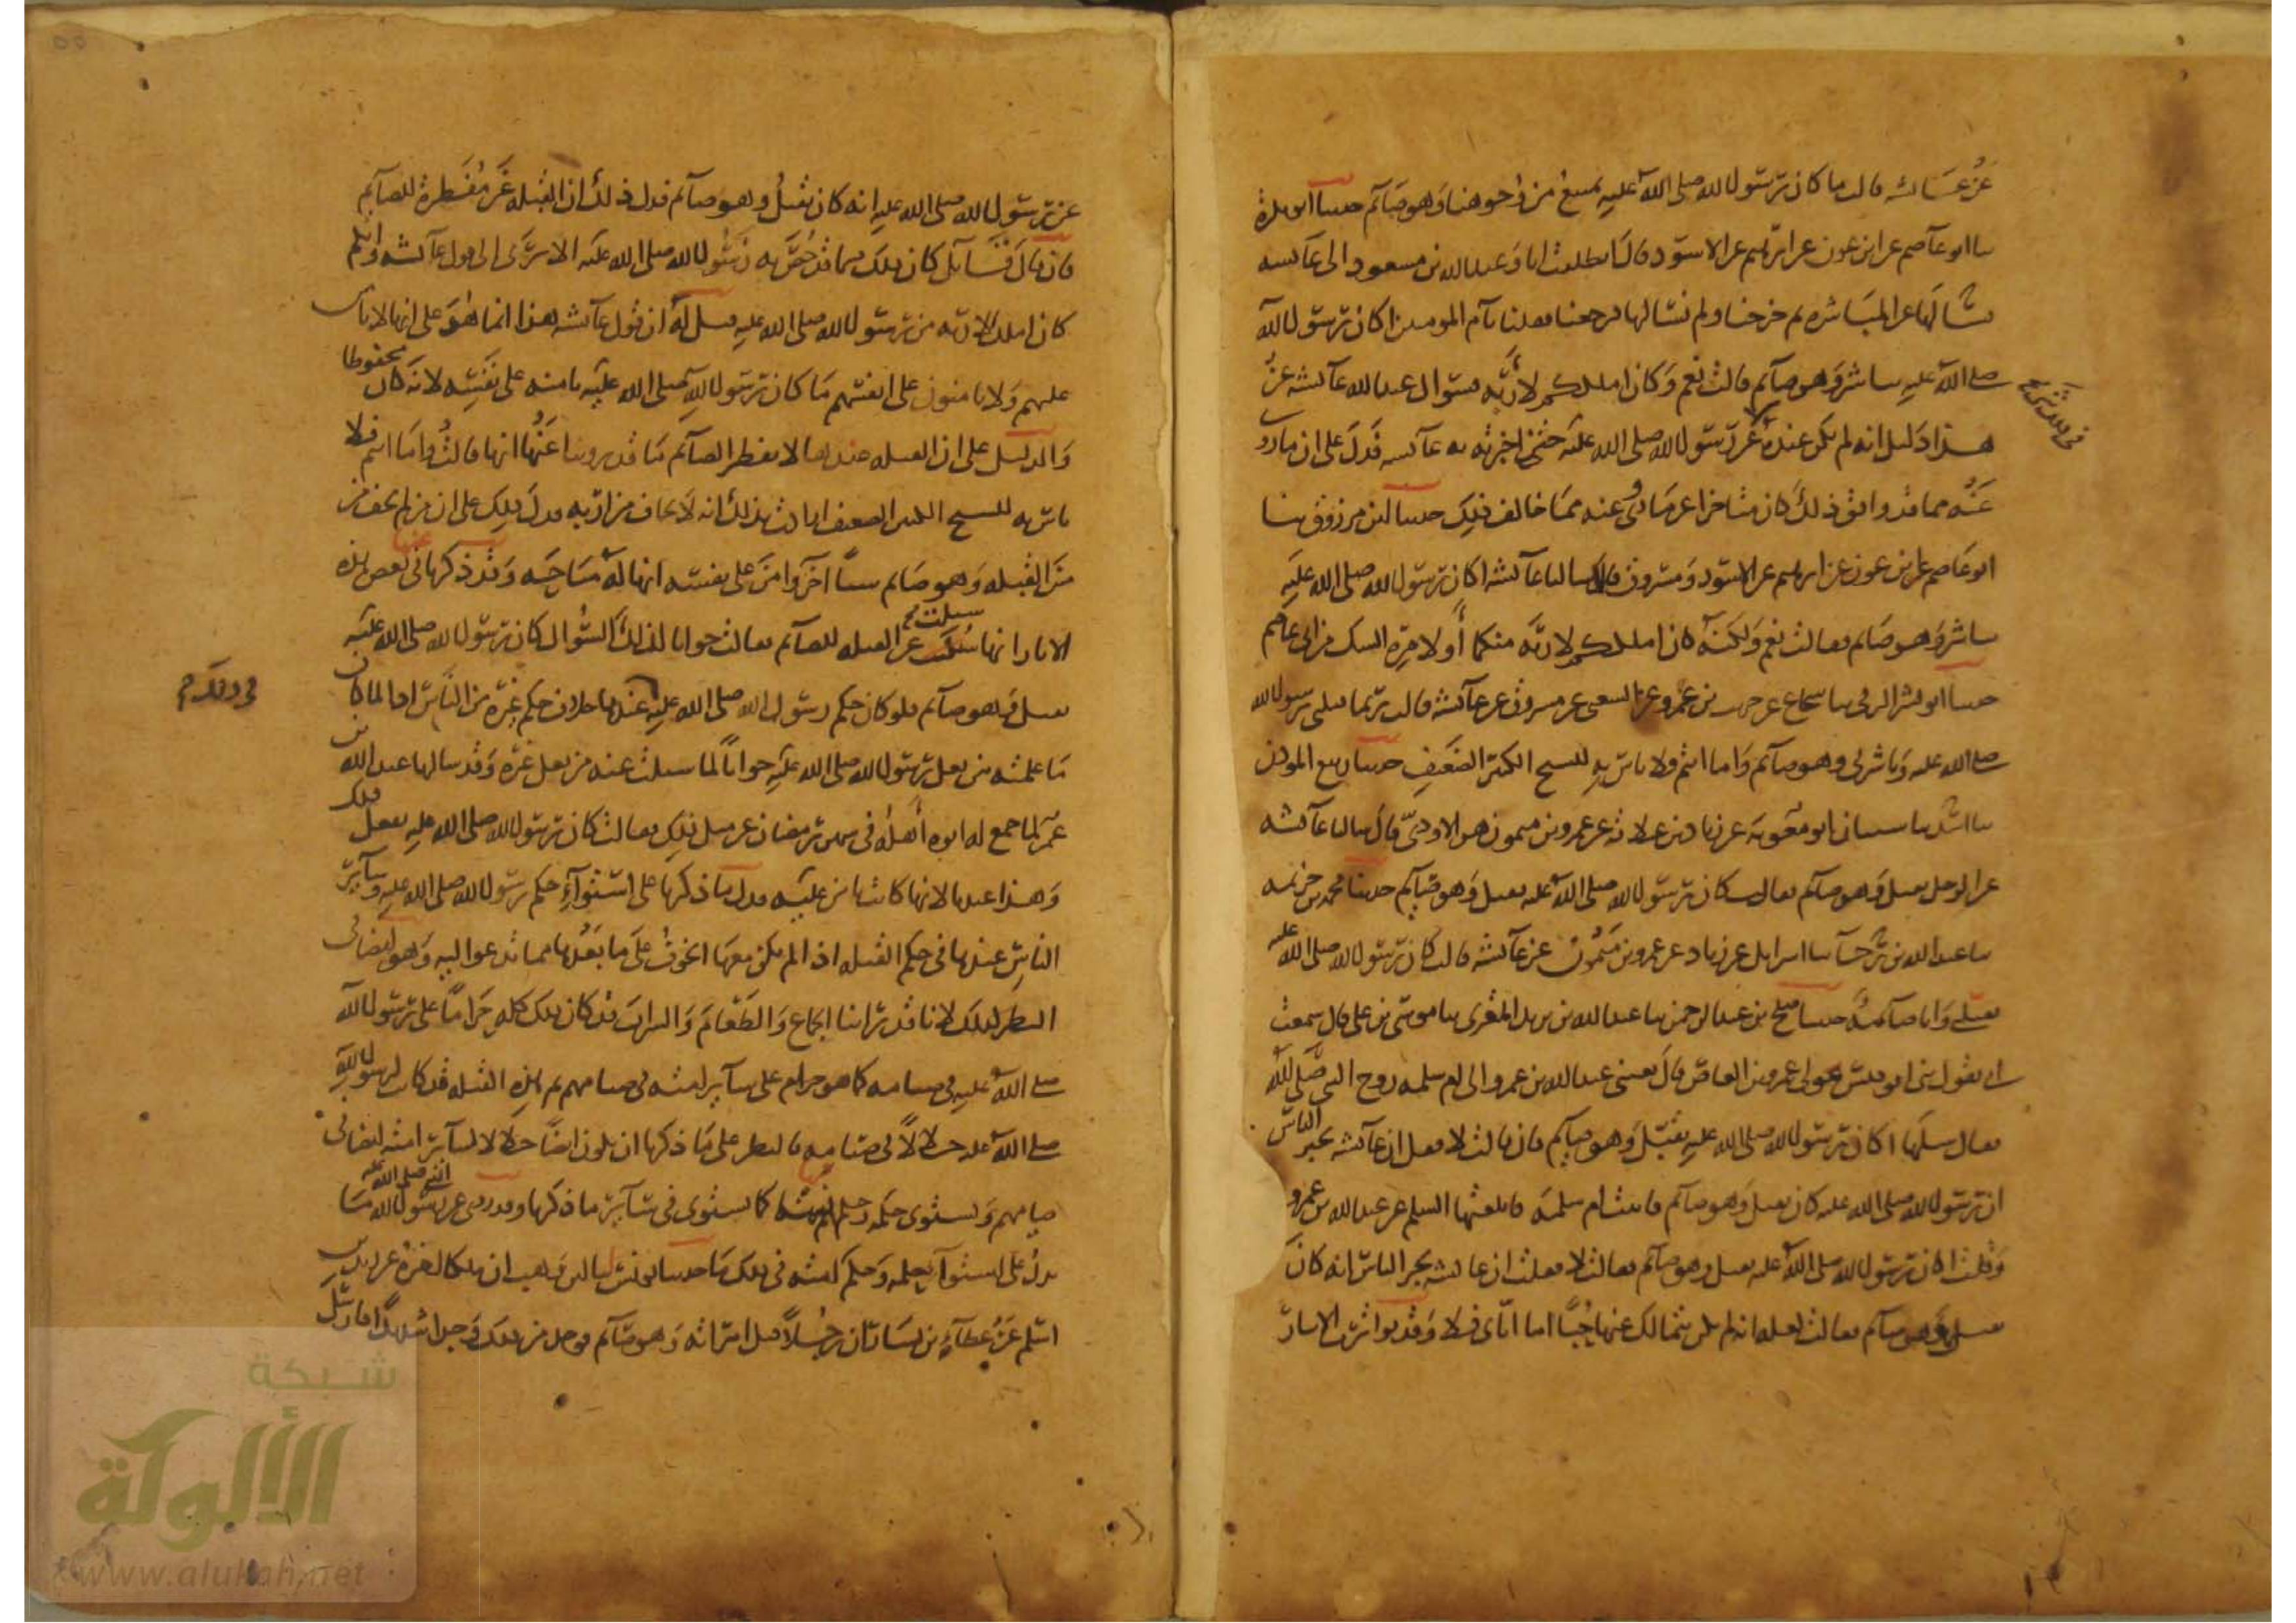 عن عائشة قالت ما كان رسول الله صلى الله عليه يمتنع من وجوهنا وهو صائم حدثنا ابو بكرة
ثنا ابو عاصم عن ابن عون عن ابرهيم عن الاسود قال انطلقت انا وعبد الله بن مسعود الى عائشة
نسألها عن المباشرة ثم خرجنا ولم نسألها فرجعنا فقلنا يا أم المومنين أكان رسول الله
صلى الله عليه يباشر وهو صائم قالت نعم وكان املككم لأربه فسؤال عبد الله عائشة عن
هذا دليل انه لم يكن عنده عن رسول الله صلى الله عليه حتى اخبرته به عائشة فدل على ان ما روي
عنه مما قد وافق ذلك كان متاخرا عن ما روي عنه مما خالف ذلك حدثنا ابن مرزوق ثنا
ابو عاصم عن ابن عون عن ابرهيم عن الاسود ومسروق قالا سالنا عائشة اكان رسول الله صلى الله عليه
يباشر وهو صائم فقالت نعم ولكنه كان املككم لاربه منكما أو لامره الشك من ابي عاصم
حدثنا ابو بشر الرقي ثنا شجاع عن حريث بن عمرو عن الشعبي عن مسروق عن عائشة قالت ربما قبلني رسول الله
صلى الله عليه وباشرني وهو صائم واما انتم فلا باس به للشيخ الكبير الضعيف حدثنا ربيع الموذن
ثنا اسد ثنا شيبان ابو معوية عن زياد بن علاقة عن عمرو بن ميمون هو الاودي قال سالنا عائشة
عن الرجل يقبل وهو صائم فقالت كان رسول الله صلى الله عليه يقبل وهو صائم حدثنا محمد بن خزيمة
ثنا عبد الله بن رجا ثنا اسرايل عن زياد عن عمرو بن ميمون عن عائشة قالت كان رسول الله صلى الله عليه
يقبلني وانا صائمة حدثنا صلح بن عبد الرحمن ثنا عبد الله بن يزيد المقرئ ثنا موسى بن علي قال سمعت
ابي يقول ثني ابو قيس مولى عمرو بن العاص قال بعثني عبد الله بن عمرو الى ام سلمة زوج النبي صلى الله
فقال سلها اكان رسول الله صلى الله عليه يقبل وهو صائم فان قالت لا فقل ان عائشة تخبر الناس
ان رسول الله صلى الله عليه كان يقبل وهو صائم فاتيت ام سلمة فابلغتها السلم عن عبد الله بن عمرو
وقلت اكان رسول الله صلى الله عليه يقبل وهو صائم فقالت لا فقلت ان عائشة تخبر الناس انه كان
يقبل وهو صائم فقالت لعله انه لم يكن يتمالك عنها حبا اما اياي فلا وقد تواترت الاثار
عن رسول الله صلى الله عليه انه كان يقبل وهو صائم فدل ذلك ان القبلة غير مفطرة للصائم
فان قال قائل كان ذلك مما قد خص به رسول الله صلى الله عليه الا ترى الى قول عائشة وايكم
كان املك لاربه من رسول الله صلى الله عليه قيل له ان قول عائشة هذا انما هو على انها لا تامن
عليهم ولا يامنون على انفسهم ما كان رسول الله صلى الله عليه يامنه على نفسه لانه كان محفوظا
والدليل على ان القبلة عندها لا تفطر الصائم ما قد روينا عنها انها قالت واما انتم فلا
باس به للشيخ الكبير الضعيف ارادت بذلك انه لا يخاف من اربه فدل ذلك على ان من لم يخف من
من القبلة وهو صائم شيئا اخر وامن على نفسه انها له مباحة وقد ذكرنا عنها في بعض هذه
الاثار انها سئلت عن القبلة للصائم فقالت جوابا لذلك السؤال كان رسول الله صلى الله عليه
يقبل وهو صائم فلو كان حكم رسول الله صلى الله عليه عندها خلاف حكم غيره من الناس اذا لما كان
ما علمته من فعل رسول الله صلى الله عليه جوابا لما سئلت عنه من فعل غيره وقد سالها عبد الله بن
عمر لما جمع له ابوه أهله في شهر رمضان عن مثل ذلك فقالت كان رسول الله صلى الله عليه يفعل ذلك
وهذا عندنا لانها كانت تامن عليه فدل ما ذكرنا على استواء حكم رسول الله صلى الله عليه وسائر
الناس عندها في حكم القبلة اذا لم يكن معها الخوف على ما بعدها مما تدعو اليه وهو ايضا في
النظر كذلك لانا قد راينا الجماع والطعام والشراب قد كان ذلك كله حراما على رسول الله
صلى الله عليه في صيامه كما هو حرام على سائر امته في صيامهم ثم هذه القبلة قد كانت لرسول الله
صلى الله عليه حلالا في صيامه فالنظر على ما ذكرنا ان يكون ايضا حلالا لسائر امته ايضا في
صيامهم ويستوي حكمه وحكمهم فيها كما يستوي في سائر ما ذكرنا وقد روي عن رسول الله ما
يدل على استواء حكمه وحكم امته في ذلك ما حدثنا يونس ثنا ابن وهب ان ملكا اخبره عن زيد بن
اسلم عن عطاء بن يسار ان رجلا قبل امراته وهو صائم فوجد من ذلك وجدا شديدا فارسل
www.alukah.net
شبكة
الألوكة